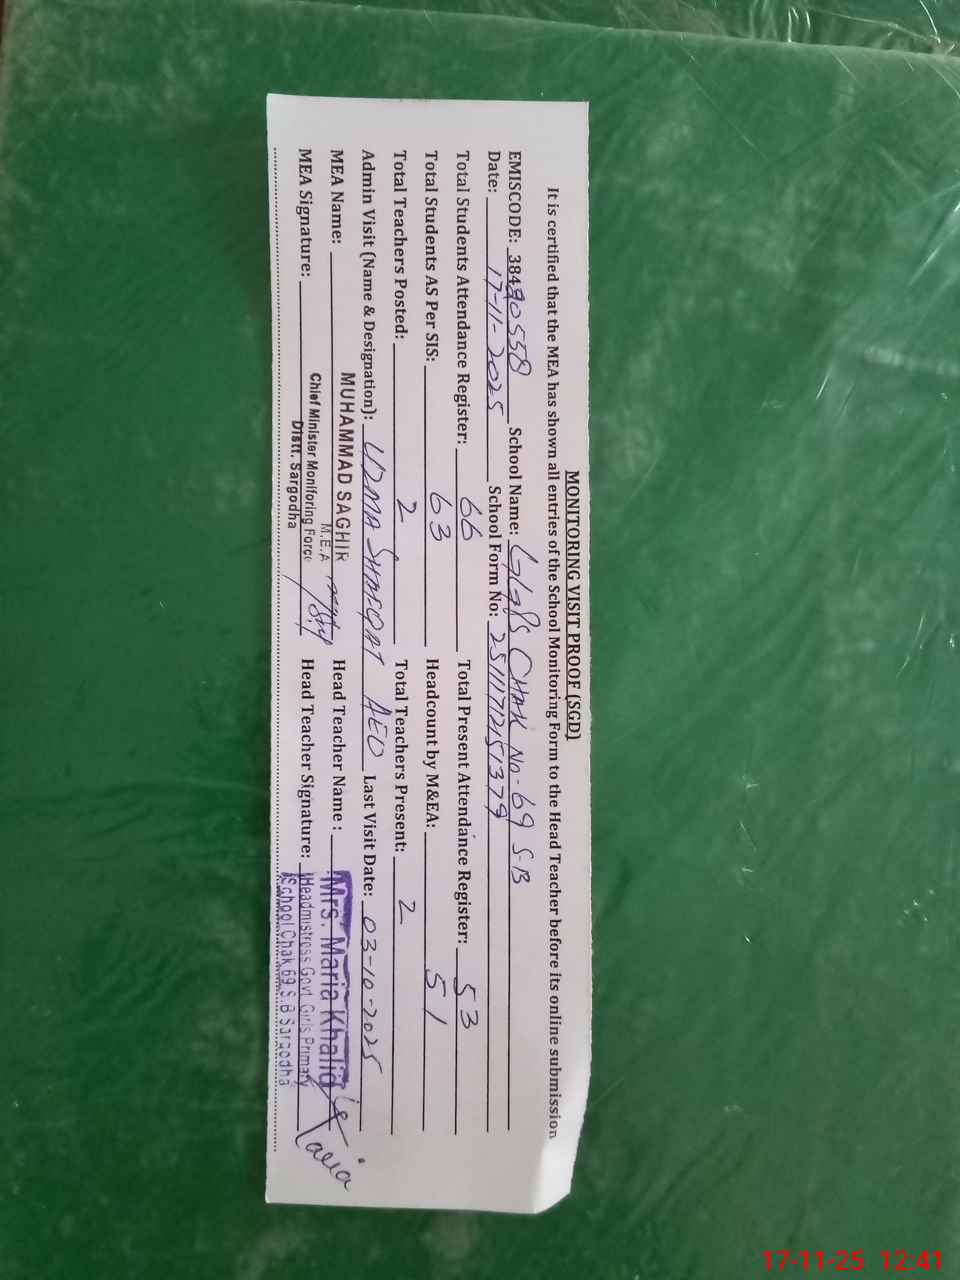 MONITORING VISIT PROOF (SGD)
It is certified that the MEA has shown all entries of the School Monitoring Form to the Head Teacher before its online submission
EMISCODE: 38490558 School Name: GGPS CHAK No-69 S-B
Date: 17-11-2025 School Form No:
Total Students Attendance Register: 66 Total Present Attendance Register: 53
Total Students AS Per SIS: 63 Headcount by M&EA: 51
Total Teachers Posted: 2 Total Teachers Present: 2
Admin Visit (Name & Designation): UZMA SHAFQAT AEO Last Visit Date: 03-10-2025
MEA Name: MUHAMMAD SAGHIR Head Teacher Name : Mrs. Maria Khalid
M.E.A
MEA Signature: Chief Minister Monitoring Force Head Teacher Signature: Headmistress Govt Girls Primary
Distt. Sargodha School Chak 69 S.B Sargodha
17-11-25 12:41